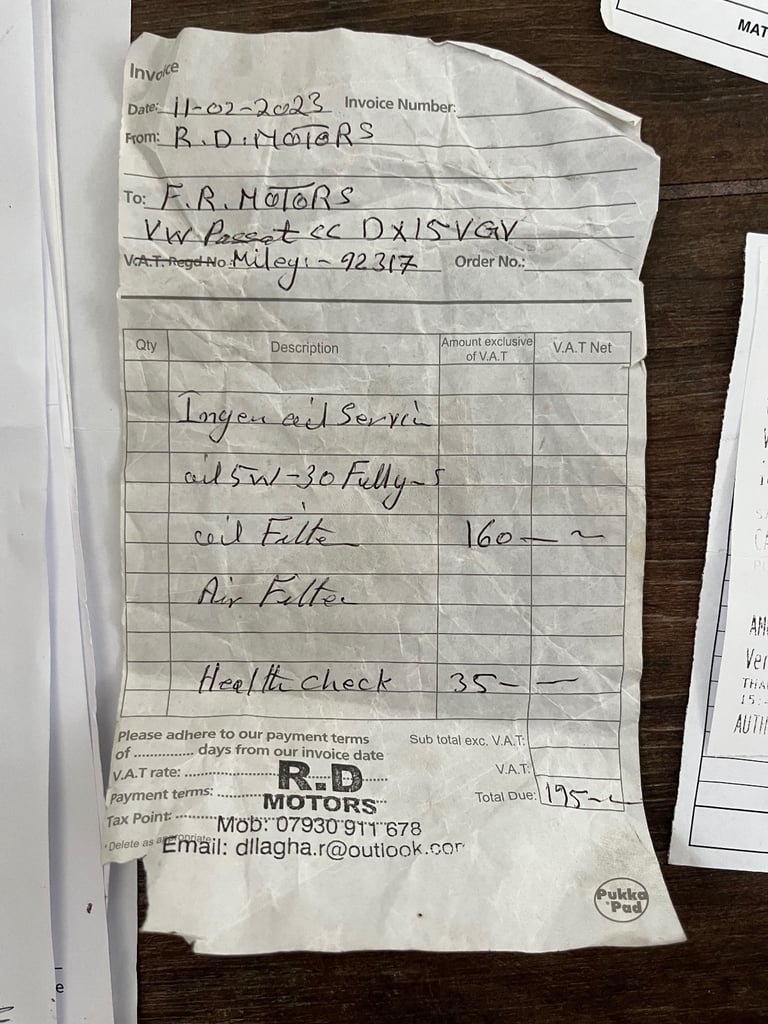 Invoice
Date: 11-02-2023 Invoice Number:
From: R.D. MOTORS
To: F.R. MOTORS
VW Passat CC DX15VGV
V.A.T. Regd No. Mileg:- 92317 Order No.:
Qty Description Amount exclusive of V.A.T V.A.T Net
Ingen oil Servic
oil 5W-30 Fully-S
oil Filte 160—~
Air Filter
Health check 35——
Please adhere to our payment terms
of .............. days from our invoice date Sub total exc. V.A.T:
V.A.T rate: V.A.T:
R.D
Payment terms: Total Due: 195-~
MOTORS
Tax Point:
Mob: 07930 911 678
*Delete as appropriate
Email: dllagha.r@outlook.com
Pukka Pad
MAT
AUTH